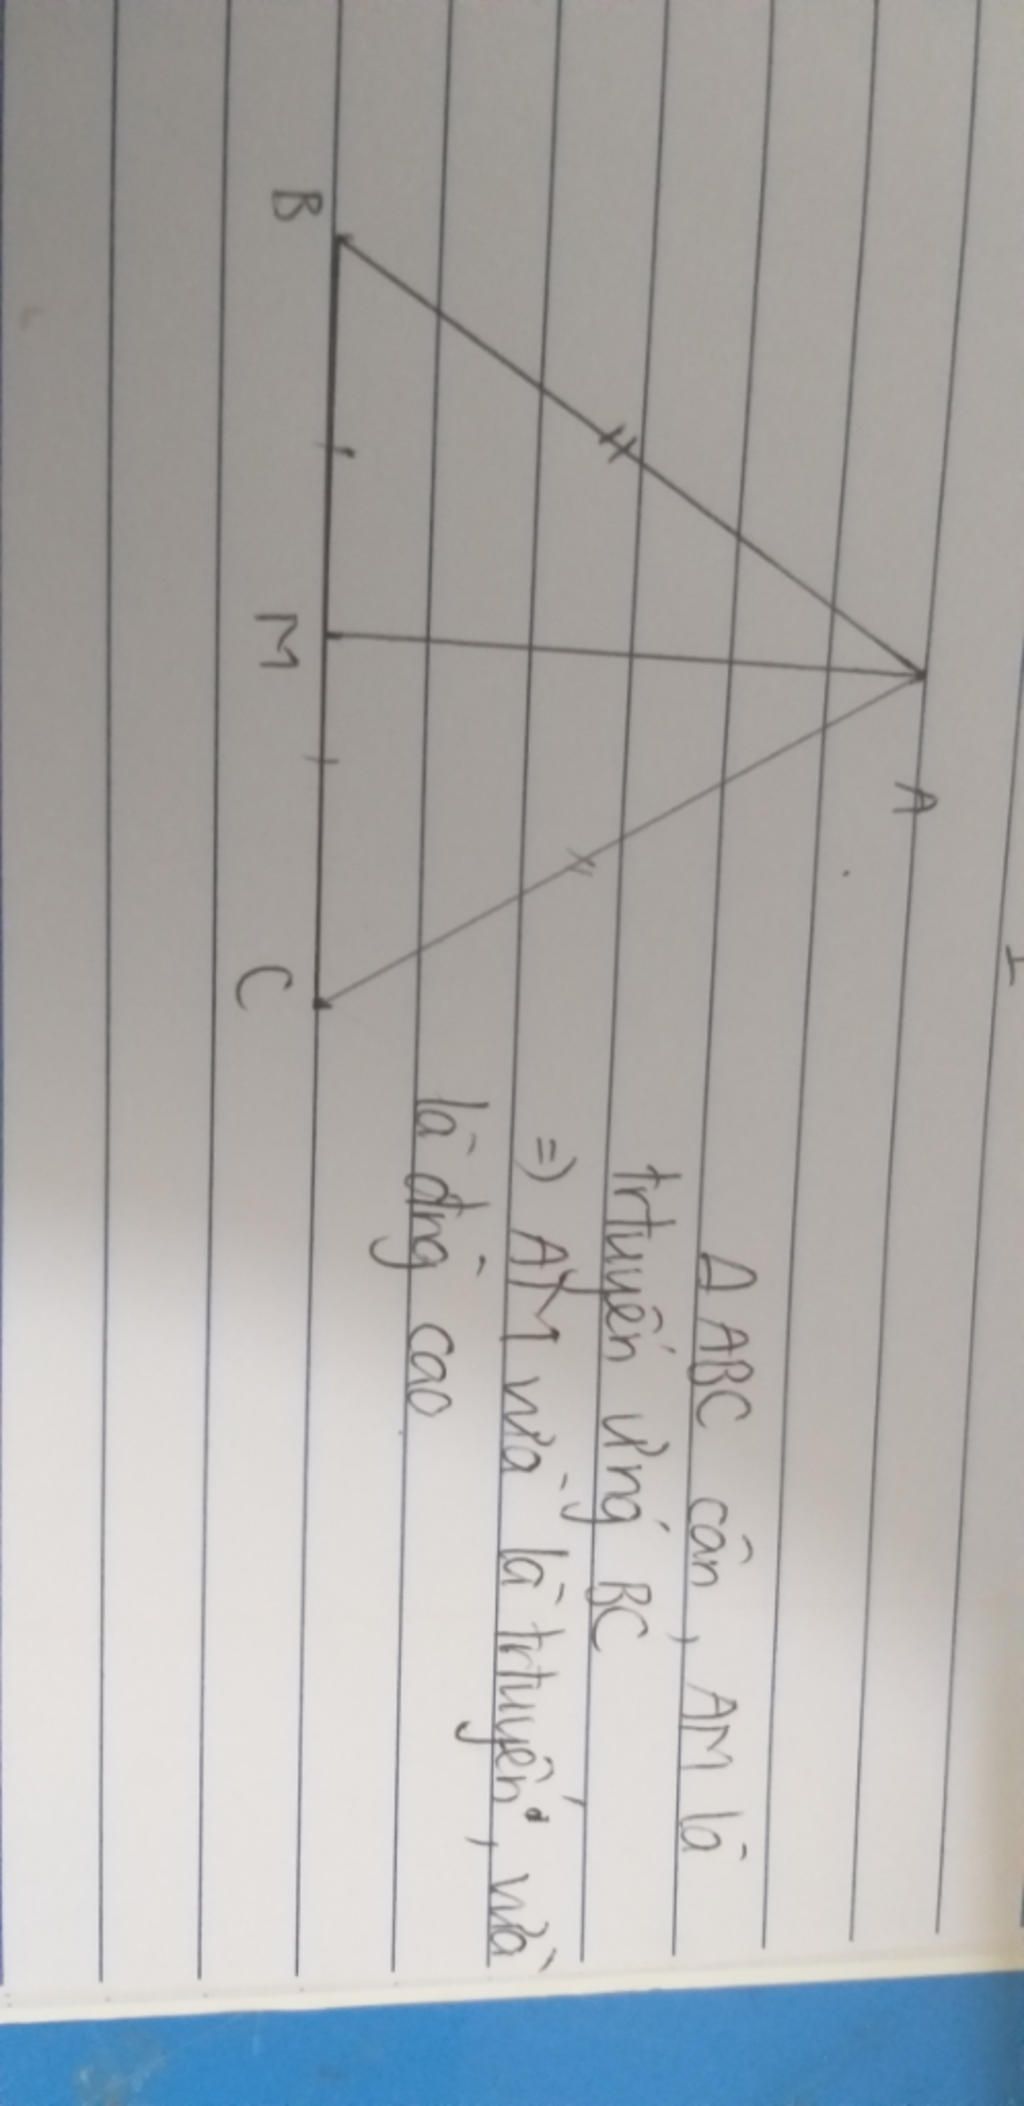 A
B
M
C
Δ ABC cân, AM là
trtuyến ứng BC
=) AM vừa là trtuyến, vừa
là đng cao